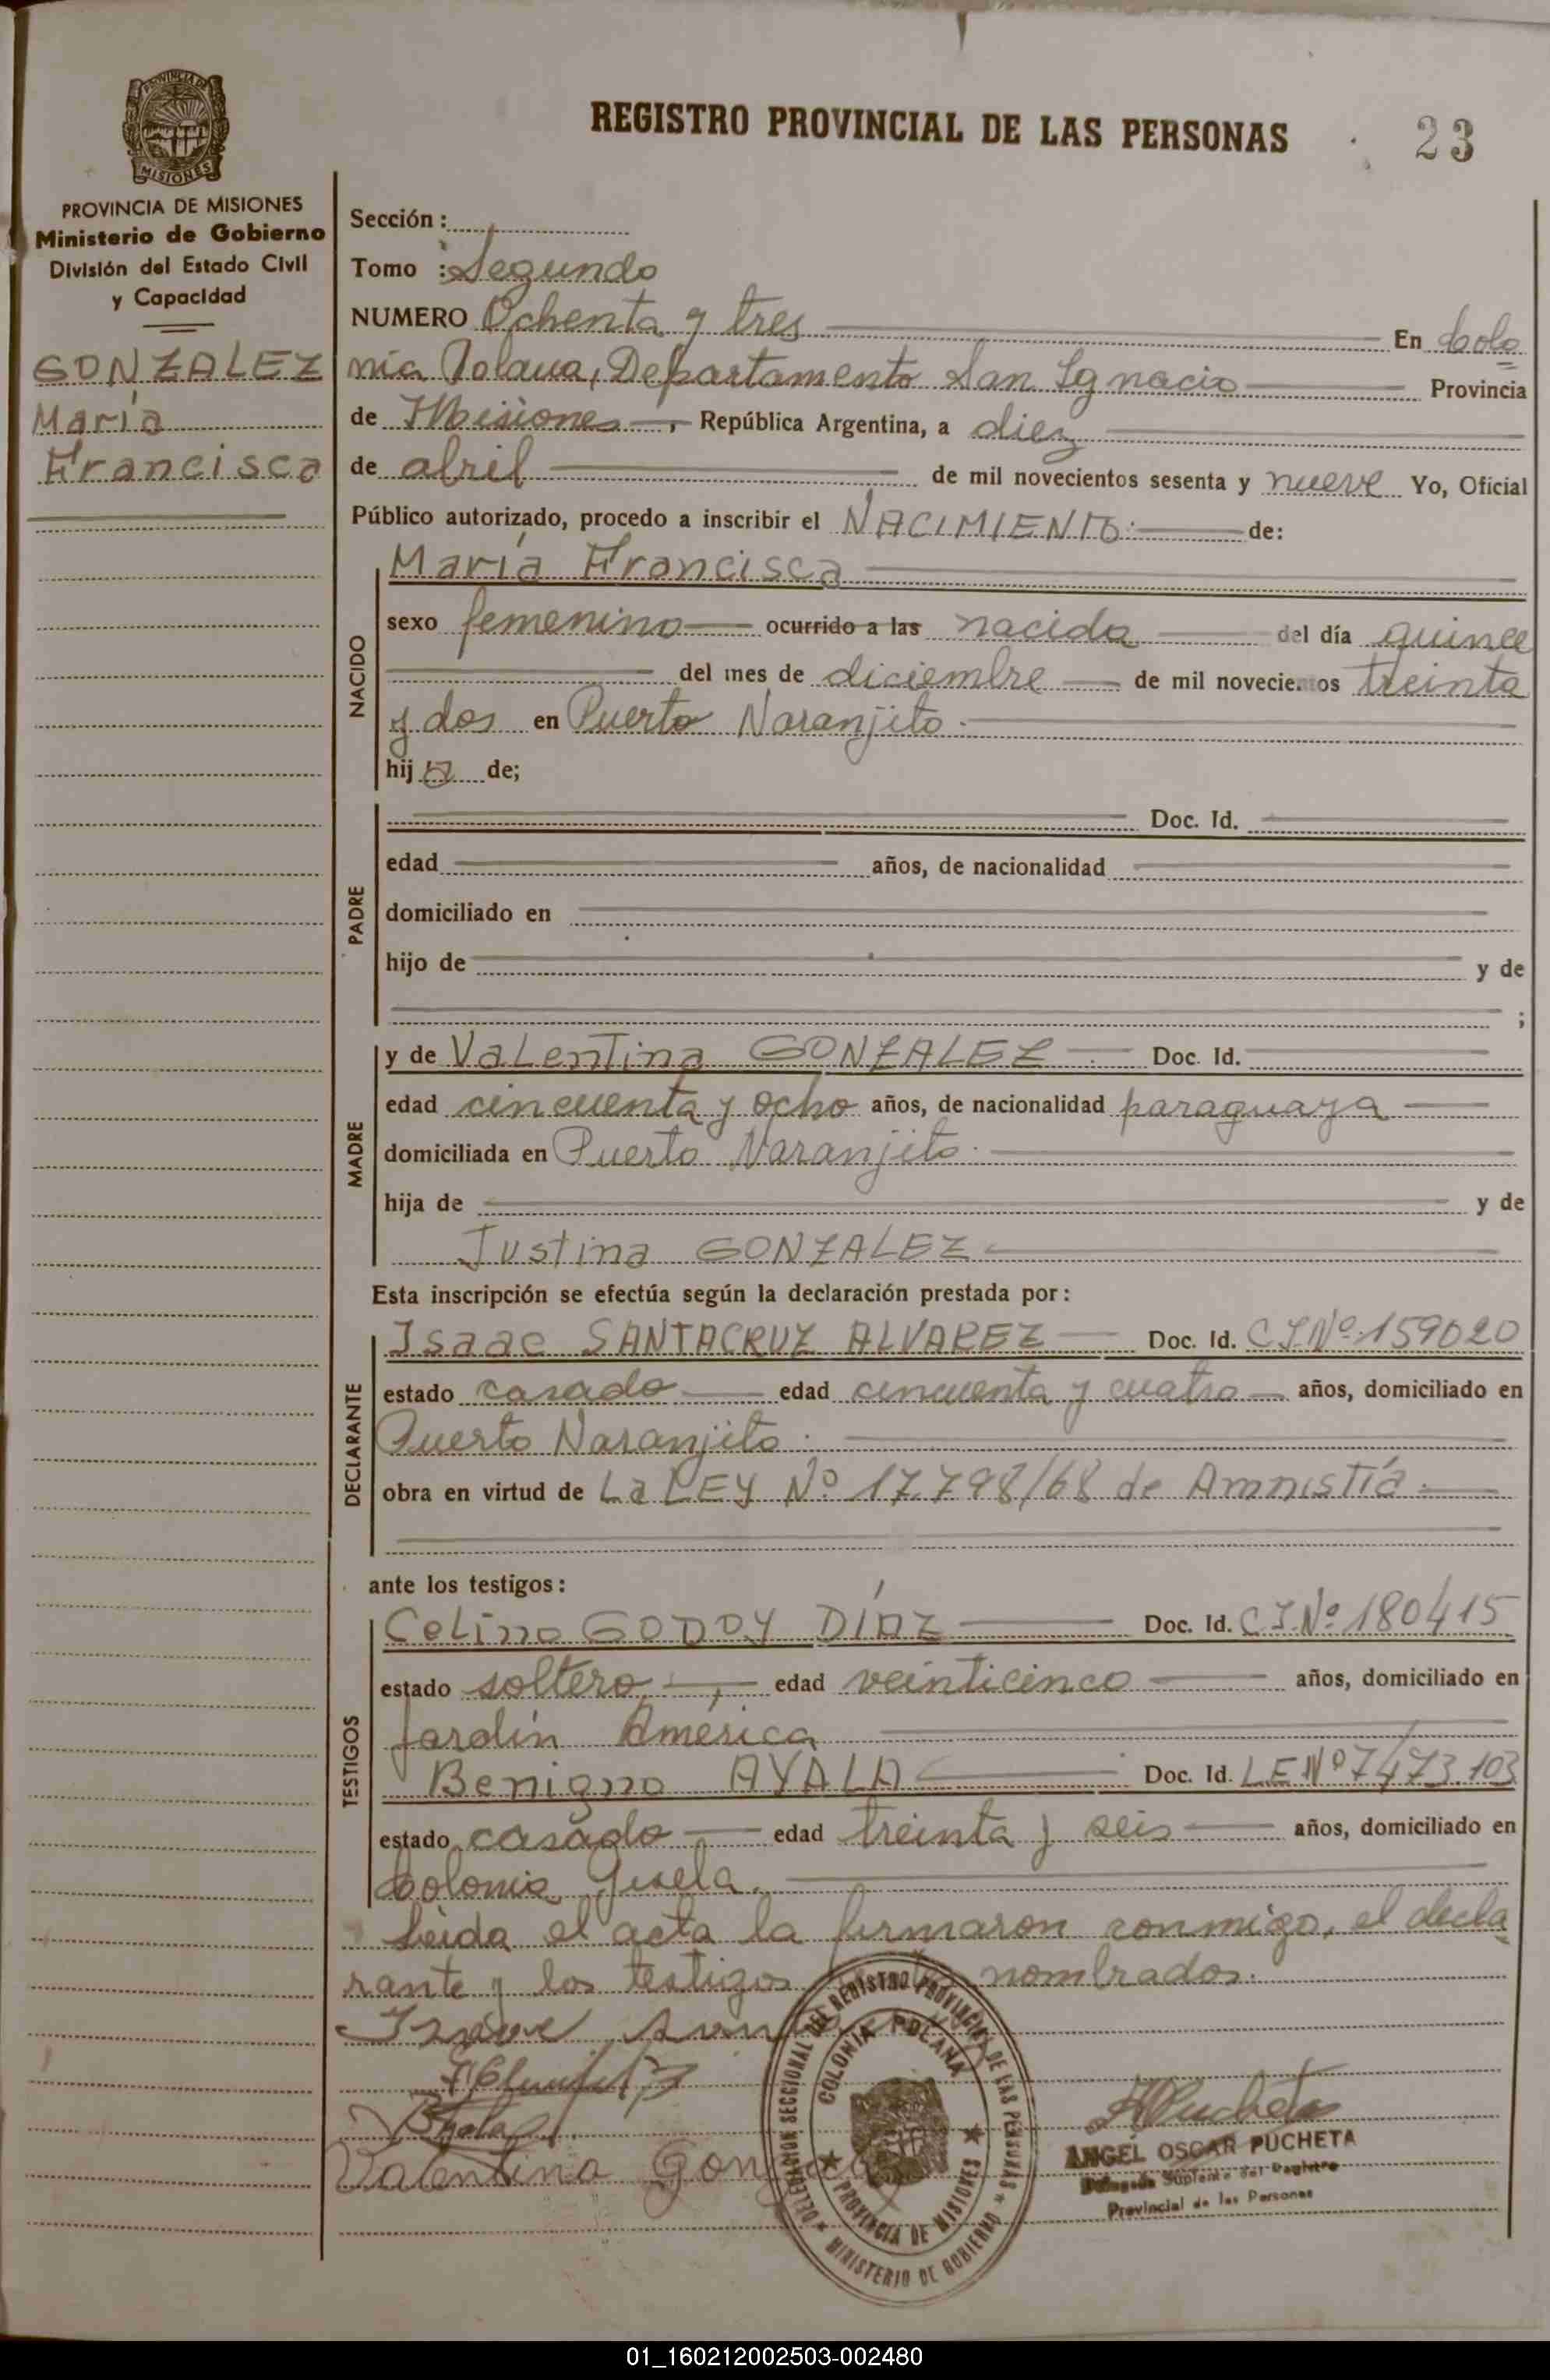 REGISTRO PROVINCIAL DE LAS PERSONAS
23
MISIONES
PROVINCIA DE MISIONES
Ministerio de Gobierno
División del Estado Civil
y Capacidad
GONZALEZ
María
Francisca
Sección :
Tomo : Segundo
NUMERO Ochenta y tres En Colo
nia Polana, Departamento San Ignacio Provincia
de Misiones, República Argentina, a diez
de abril de mil novecientos sesenta y nueve Yo, Oficial
Público autorizado, procedo a inscribir el NACIMIENTO: de:
NACIDO
María Francisca
sexo femenino ocurrido a las nacida del día quince
del mes de diciembre de mil novecientos treinta
y dos en Puerto Naranjito.
hija de;
PADRE
Doc. Id.
edad años, de nacionalidad
domiciliado en
hijo de y de
;
MADRE
y de Valentina GONZALEZ Doc. Id.
edad cincuenta y ocho años, de nacionalidad paraguaya
domiciliada en Puerto Naranjito.
hija de y de
Justina GONZALEZ
Esta inscripción se efectúa según la declaración prestada por:
DECLARANTE
Isaac SANTACRUZ ALVAREZ Doc. Id. C.I.Nº 159020
estado casado edad cincuenta y cuatro años, domiciliado en
Puerto Naranjito.
obra en virtud de La LEY Nº 17.798/68 de Amnistía.
ante los testigos:
TESTIGOS
Celino GODOY DÍAZ Doc. Id. C.I.Nº 180415
estado soltero, edad veinticinco años, domiciliado en
Jardín América
Benigno AYALA Doc. Id. L.E.Nº 7.473.103
estado casado edad treinta y seis años, domiciliado en
Colonia Gisela.
Leída el acta la firmaron conmigo, el decla
rante y los testigos nombrados.
Valentina Gonzalez
DELEGACION SECCIONAL DEL REGISTRO PROVINCIAL DE LAS PERSONAS
MINISTERIO DE GOBIERNO
COLONIA POLANA
PROVINCIA DE MISIONES
ANGEL OSCAR PUCHETA
Delegado Suplente del Registro
Provincial de las Personas
01_160212002503-002480